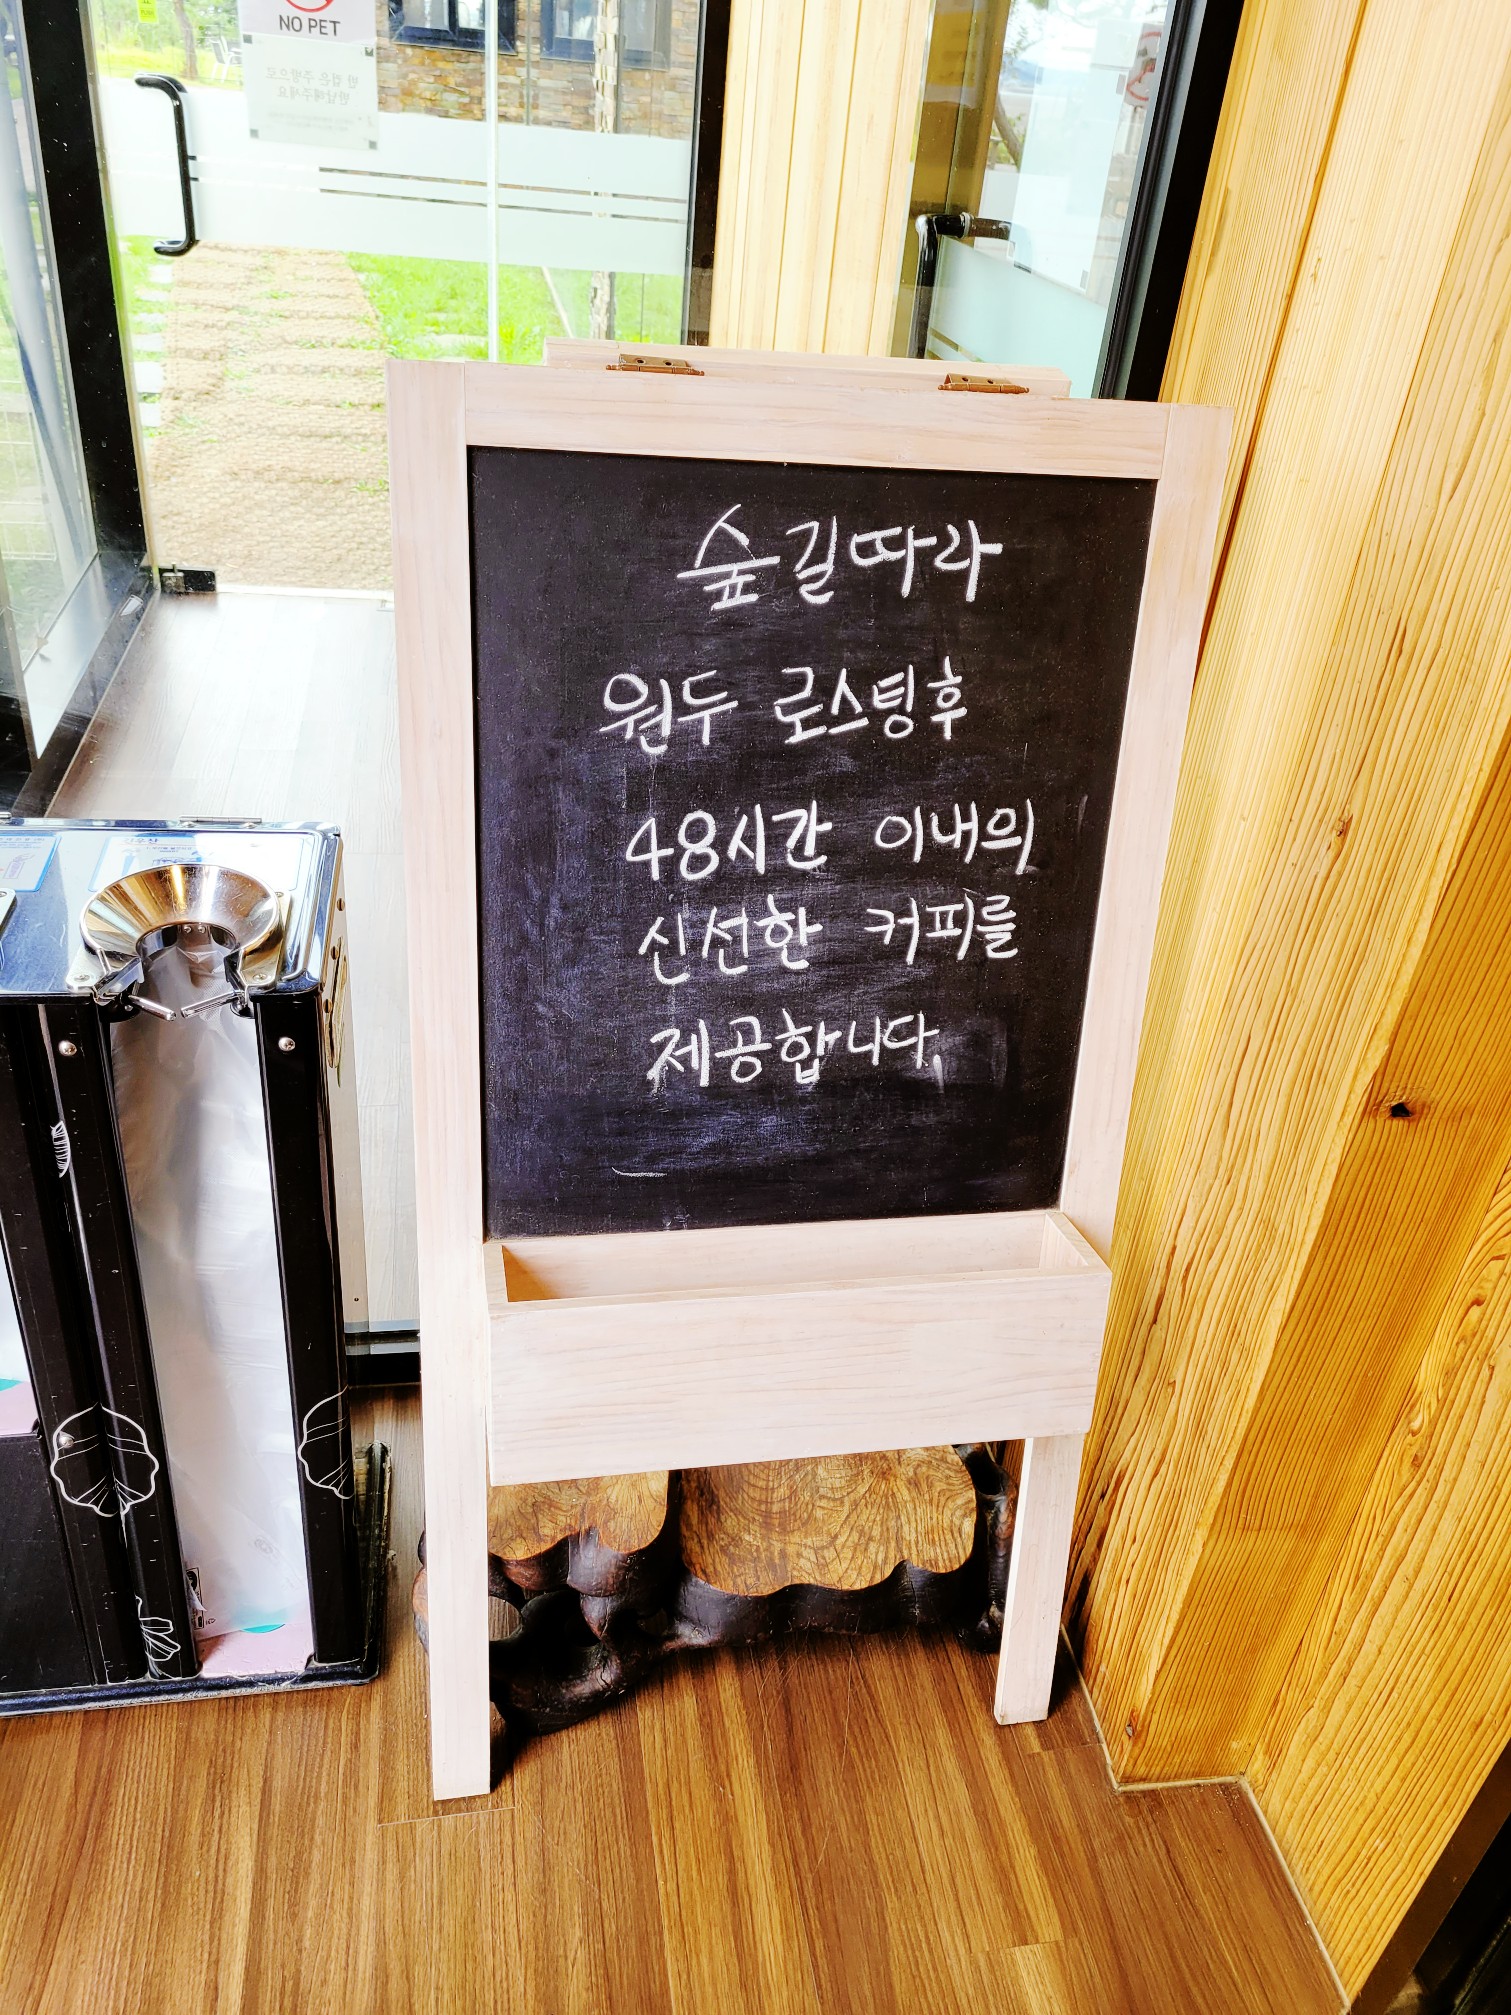 NO PET
숲길따라
원두 로스팅후
48시간 이내의
신선한 커피를
제공합니다.